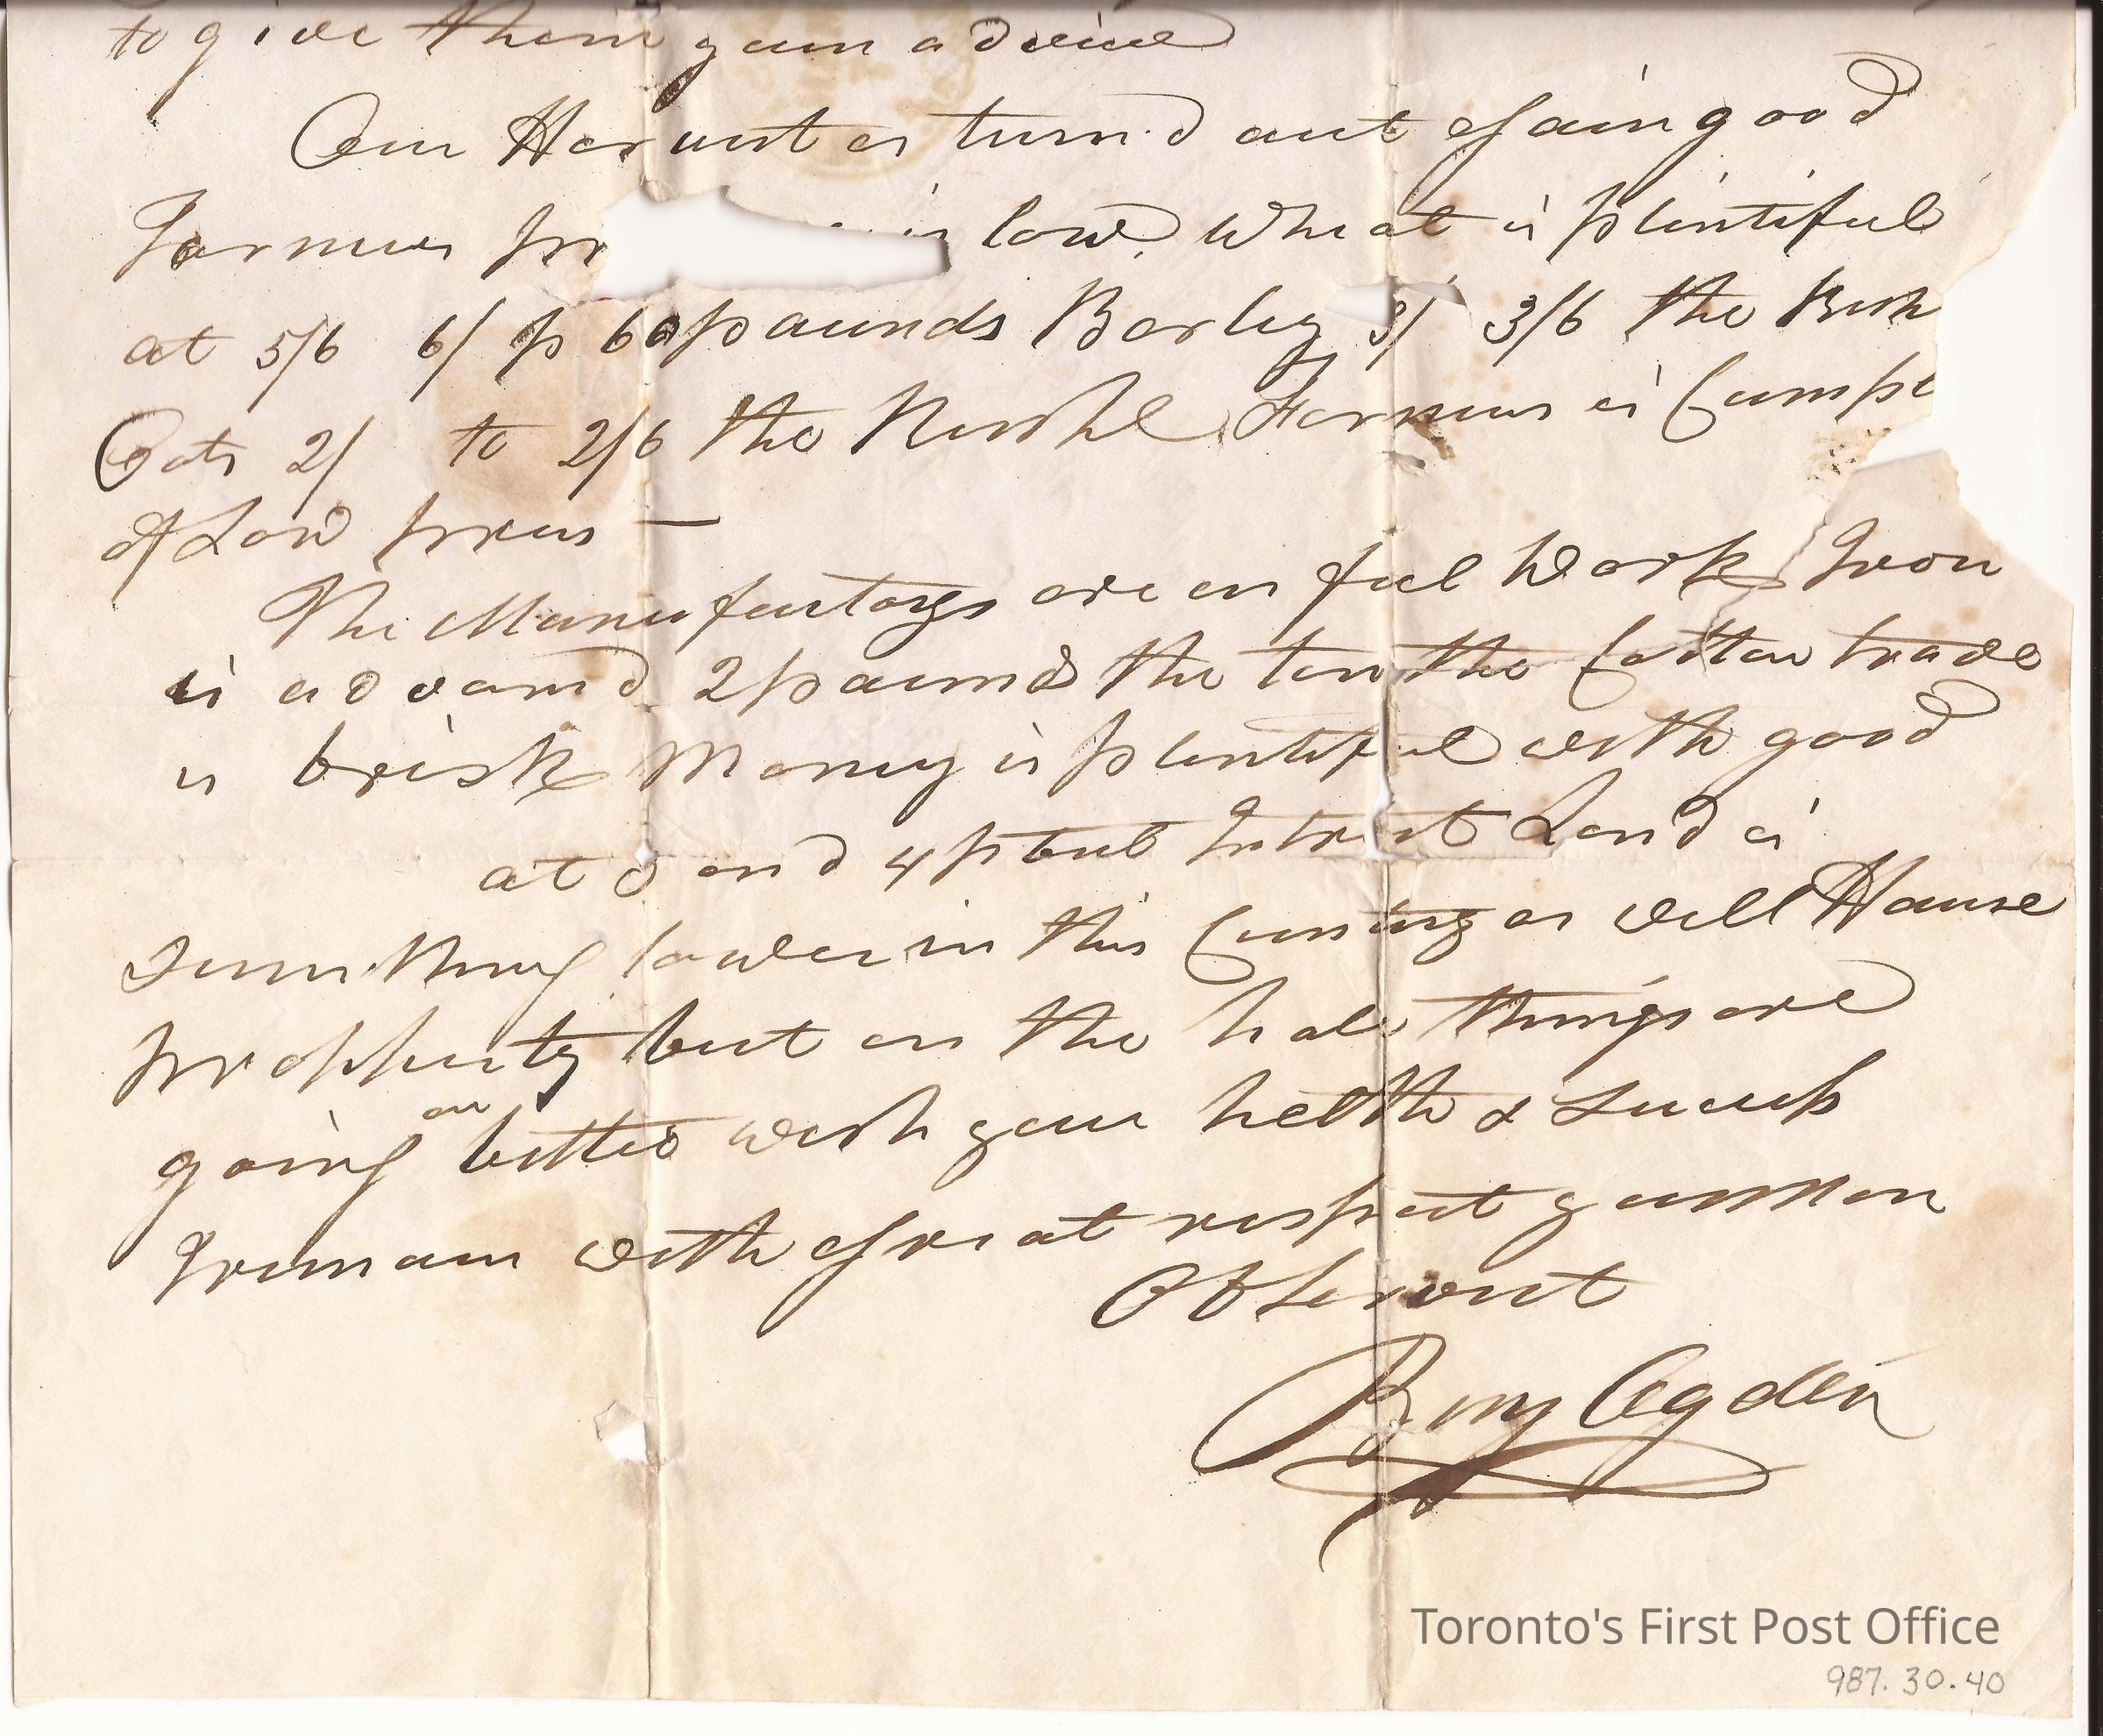 to give them your advice
Our Harvest is turn.d out of aingood
Farmers pr is low, Wheat is plentiful
at 5/6 6/ p 60 pounds Barley 3/ 3/6 the Bush
Oats 2/ to 2/6 the Bushl Farmers is Compl
of Low prices —
The Manufactorys are in full Work Iron
is advancd 2 pounds the ton the Cotton trade
is brisk Money is plentiful with good
at 3 and 4 p Intrest Land is
Something lower in this Cuntrey as well House
propperty but on the hole things are
going on better wish your helth & Sucess
I remain with great respect your
Ob Servent
Benj Ogden
Toronto's First Post Office
987.30.40